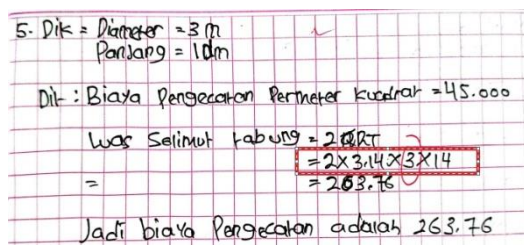 5. Dik = Diameter = 3 m
Panjang = 1 dm
Dit : Biaya Pengecatan Permeter kuadrat = 45.000
Luas Selimut tabung = 2πRT
= 2 x 3.14 x 3 x 14
= = 263.76
Jadi biaya Pengecatan adalah 263.76